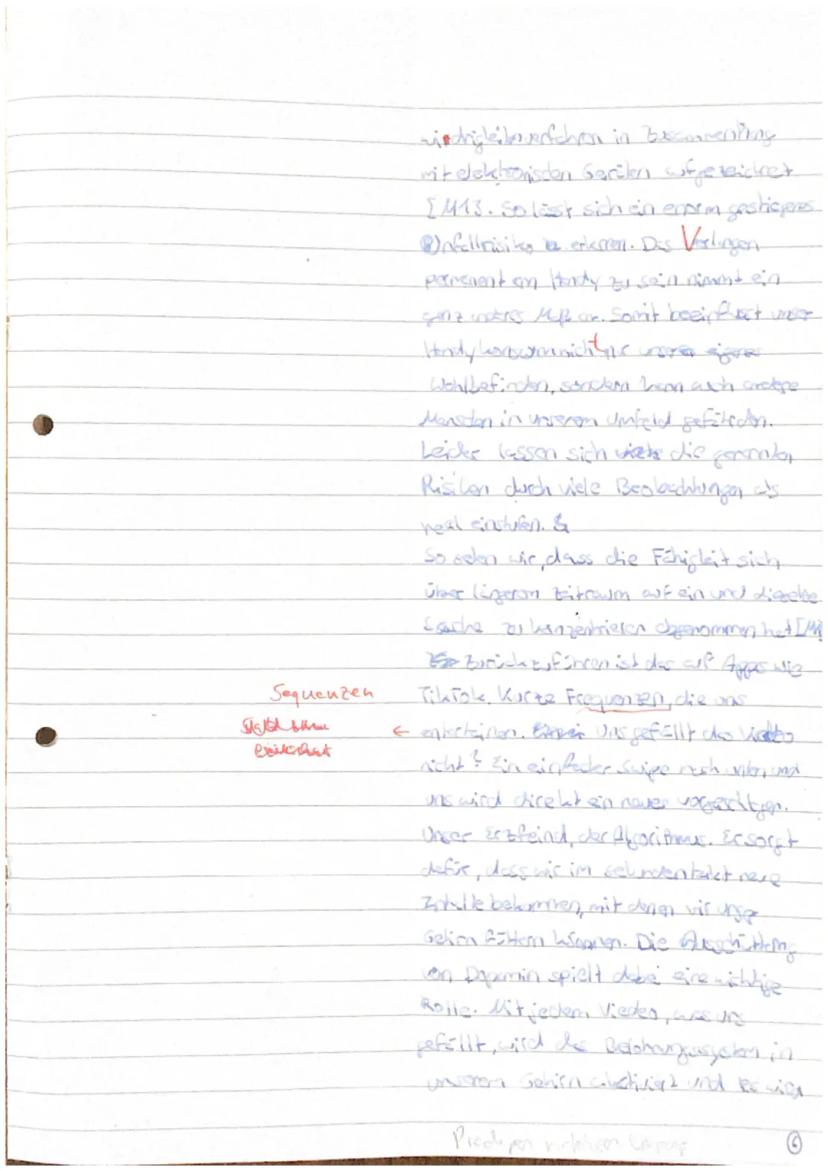 in Zusammenhang
mit elektronischen Geräten aufgezeichnet
[M1]. So lässt sich ein enorm gestiegenes
Unfallrisiko erkennen. Das Verlangen
permanent am Handy zu sein nimmt ein
ganz anderes Maß an. Somit beeinflusst unser
Handykonsum nicht nur unser eigenes
Wohlbefinden, sondern kann auch andere
Menschen in unserem Umfeld gefährden.
Leider lassen sich die genannten
Risiken durch viele Beobachtungen als
real einstufen.
So sehen wir, dass die Fähigkeit sich
über längeren Zeitraum auf ein und dieselbe
Sache zu konzentrieren abgenommen hat
Zurückzuführen ist das auf Apps wie
Sequenzen
TikTok. Kurze Frequenzen, die uns
unterhalten. Uns gefällt das Video
nicht? Ein einfacher Swipe nach unten, und
uns wird direkt ein neues vorgeschlagen.
Unser Erzfeind, der Algorithmus. Er sorgt
dafür, dass wir im Sekundentakt neue
Inhalte bekommen, mit denen wir unser
Gehirn füttern können. Die Ausschüttung
von Dopamin spielt dabei eine wichtige
Rolle. Mit jedem Viedeo, was uns
gefällt, wird das Belohnungssystem in
unserem Gehirn aktiviert und es wird
6